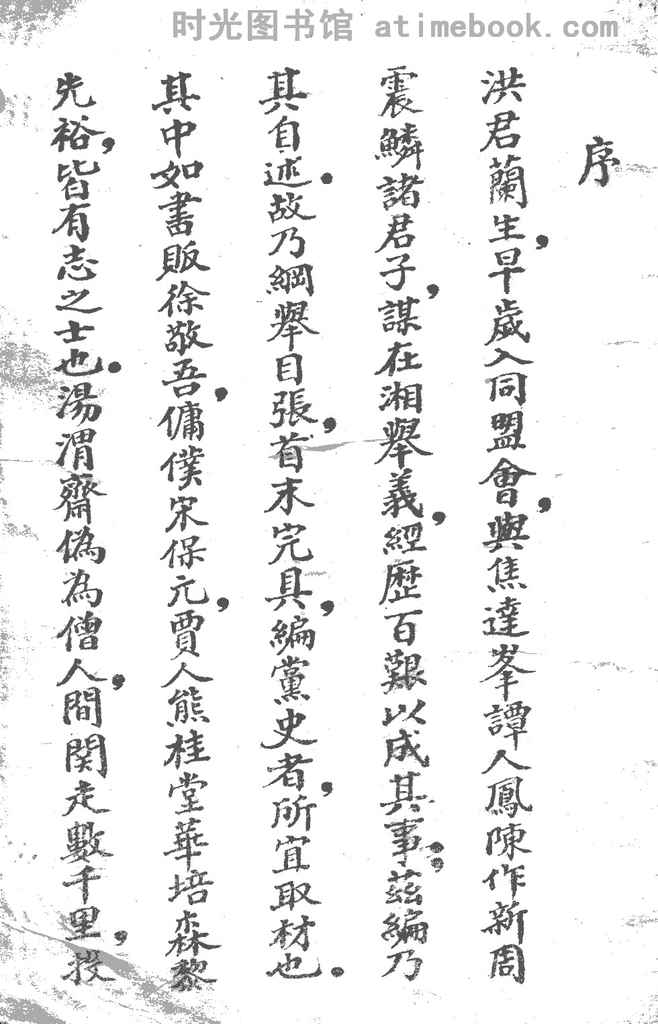 时光图书馆 atimebook.com
序
洪君蘭生，早歲入同盟會，與焦達峯譚人鳳陳作新周
震鱗諸君子，謀在湘舉義，經歷百艱以成其事；茲編乃
其自述。故乃綱舉目張，首末完具，編黨史者，所宜取材也。
其中如書販徐敬吾，傭僕宋保元，賈人熊桂堂華培森黎
先裕，皆有志之士也。湯渭齋偽為僧人，間関走數千里，投